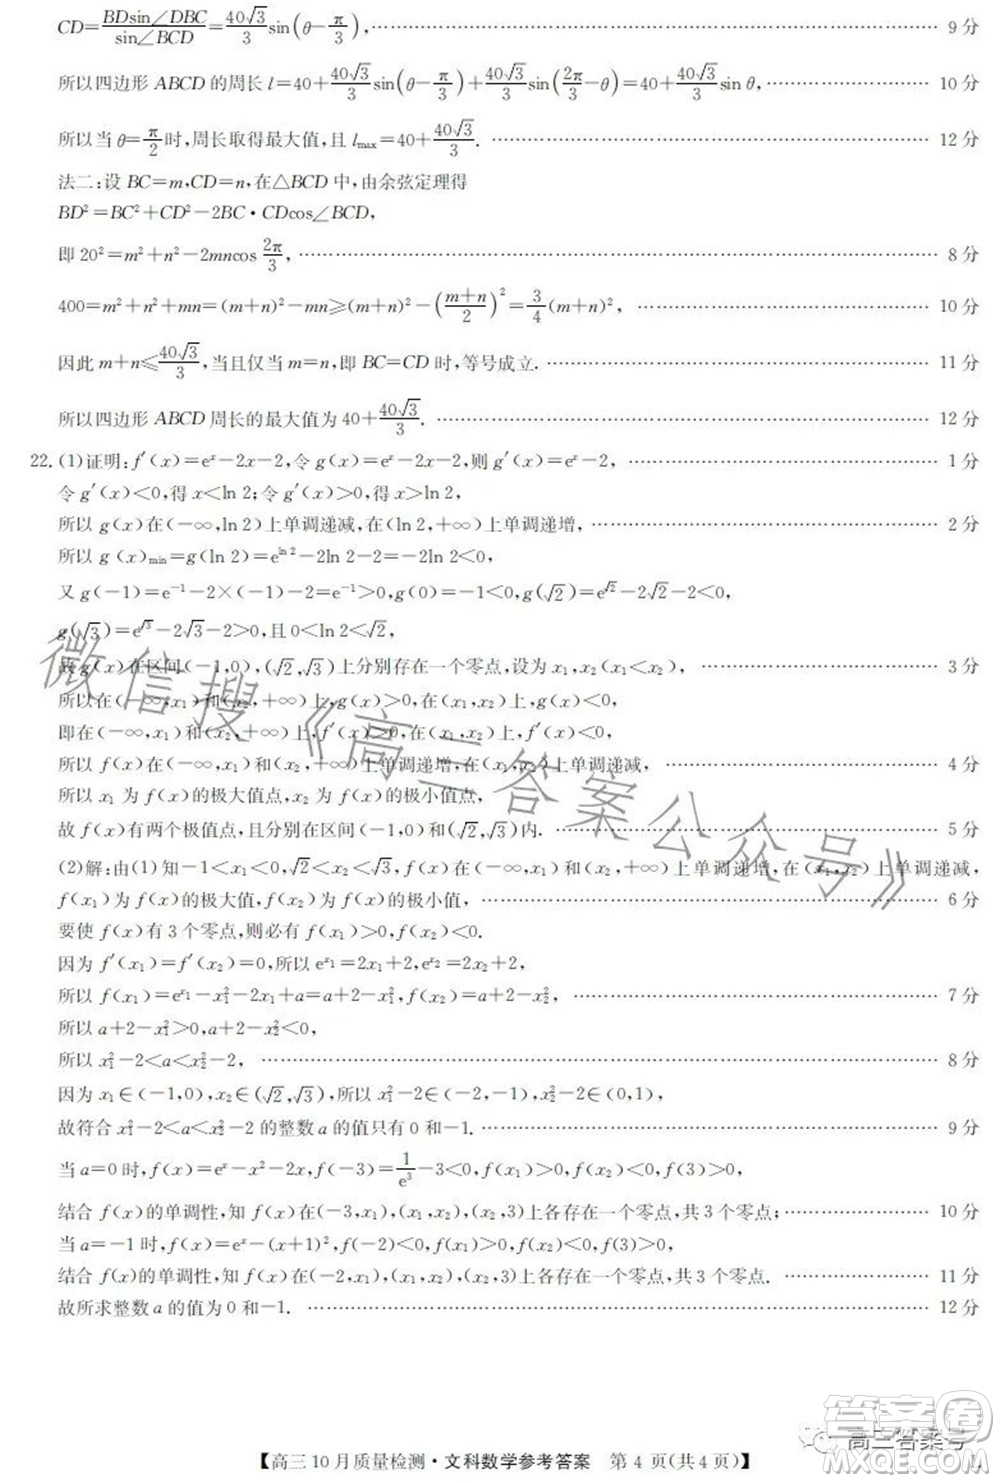 CD=\frac{BDsin∠DBC}{sin∠BCD}=\frac{40√3}{3}sin(θ-\frac{π}{3}),……9分
所以四边形 ABCD 的周长 l=40+\frac{40√3}{3}sin(θ-\frac{π}{3})+\frac{40√3}{3}sin(\frac{2π}{3}-θ)=40+\frac{40√3}{3}sin θ,……10分
所以当 θ=\frac{π}{2}时,周长取得最大值,且 l_{max}=40+\frac{40√3}{3}.……12分
法二:设 BC=m,CD=n,在△BCD 中,由余弦定理得
BD²=BC²+CD²-2BC·CDcos∠BCD,
即 20²=m²+n²-2mncos \frac{2π}{3},……8分
400=m²+n²+mn=(m+n)²-mn≥(m+n)²-(\frac{m+n}{2})²=\frac{3}{4}(m+n)²,……10分
因此 m+n≤\frac{40√3}{3},当且仅当 m=n,即 BC=CD 时,等号成立.……11分
所以四边形 ABCD 周长的最大值为 40+\frac{40√3}{3}.……12分
22.(1)证明:f′(x)=eˣ-2x-2,令 g(x)=eˣ-2x-2,则 g′(x)=eˣ-2,……1分
令 g′(x)<0,得 x<ln 2;令 g′(x)>0,得 x>ln 2,
所以 g(x)在(-∞,ln 2)上单调递减,在(ln 2,+∞)上单调递增,……2分
所以 g(x)_{min}=g(ln 2)=e^{ln 2}-2ln 2-2=-2ln 2<0,
又 g(-1)=e⁻¹-2×(-1)-2=e⁻¹>0,g(0)=-1<0,g(√2)=e^{√2}-2√2-2<0,
g(√3)=e^{√3}-2√3-2>0,且 0<ln 2<√2,
故 g(x)在区间(-1,0),(√2,√3)上分别存在一个零点,设为 x₁,x₂(x₁<x₂),……3分
所以在(-∞,x₁)和(x₂,+∞)上,g(x)>0,在(x₁,x₂)上,g(x)<0,
即在(-∞,x₁)和(x₂,+∞)上,f′(x)>0,在(x₁,x₂)上,f′(x)<0,
所以 f(x)在(-∞,x₁)和(x₂,+∞)上单调递增,在(x₁,x₂)上单调递减,……4分
所以 x₁ 为 f(x)的极大值点,x₂ 为 f(x)的极小值点,
故 f(x)有两个极值点,且分别在区间(-1,0)和(√2,√3)内.……5分
(2)解:由(1)知-1<x₁<0,√2<x₂<√3,f(x)在(-∞,x₁)和(x₂,+∞)上单调递增,在(x₁,x₂)上单调递减,
f(x₁)为 f(x)的极大值,f(x₂)为 f(x)的极小值,……6分
要使 f(x)有 3 个零点,则必有 f(x₁)>0,f(x₂)<0.
因为 f′(x₁)=f′(x₂)=0,所以 e^{x₁}=2x₁+2,e^{x₂}=2x₂+2,
所以 f(x₁)=e^{x₁}-x₁²-2x₁+a=a+2-x₁²,f(x₂)=a+2-x₂²,……7分
所以 a+2-x₁²>0,a+2-x₂²<0,
所以 x₁²-2<a<x₂²-2,……8分
因为 x₁∈(-1,0),x₂∈(√2,√3),所以 x₁²-2∈(-2,-1),x₂²-2∈(0,1),
故符合 x₁²-2<a<x₂²-2 的整数 a 的值只有 0 和-1.……9分
当 a=0 时,f(x)=eˣ-x²-2x,f(-3)=\frac{1}{e³}-3<0,f(x₁)>0,f(x₂)<0,f(3)>0,
结合 f(x)的单调性,知 f(x)在(-3,x₁),(x₁,x₂),(x₂,3)上各存在一个零点,共 3 个零点;……10分
当 a=-1 时,f(x)=eˣ-(x+1)²,f(-2)<0,f(x₁)>0,f(x₂)<0,f(3)>0,
结合 f(x)的单调性,知 f(x)在(-2,x₁),(x₁,x₂),(x₂,3)上各存在一个零点,共 3 个零点.……11分
故所求整数 a 的值为 0 和-1.……12分
微信搜《高三答案公众号》
【高三 10 月质量检测·文科数学参考答案 第 4 页(共 4 页)】
高三答案号
答案圈
MXQE.COM